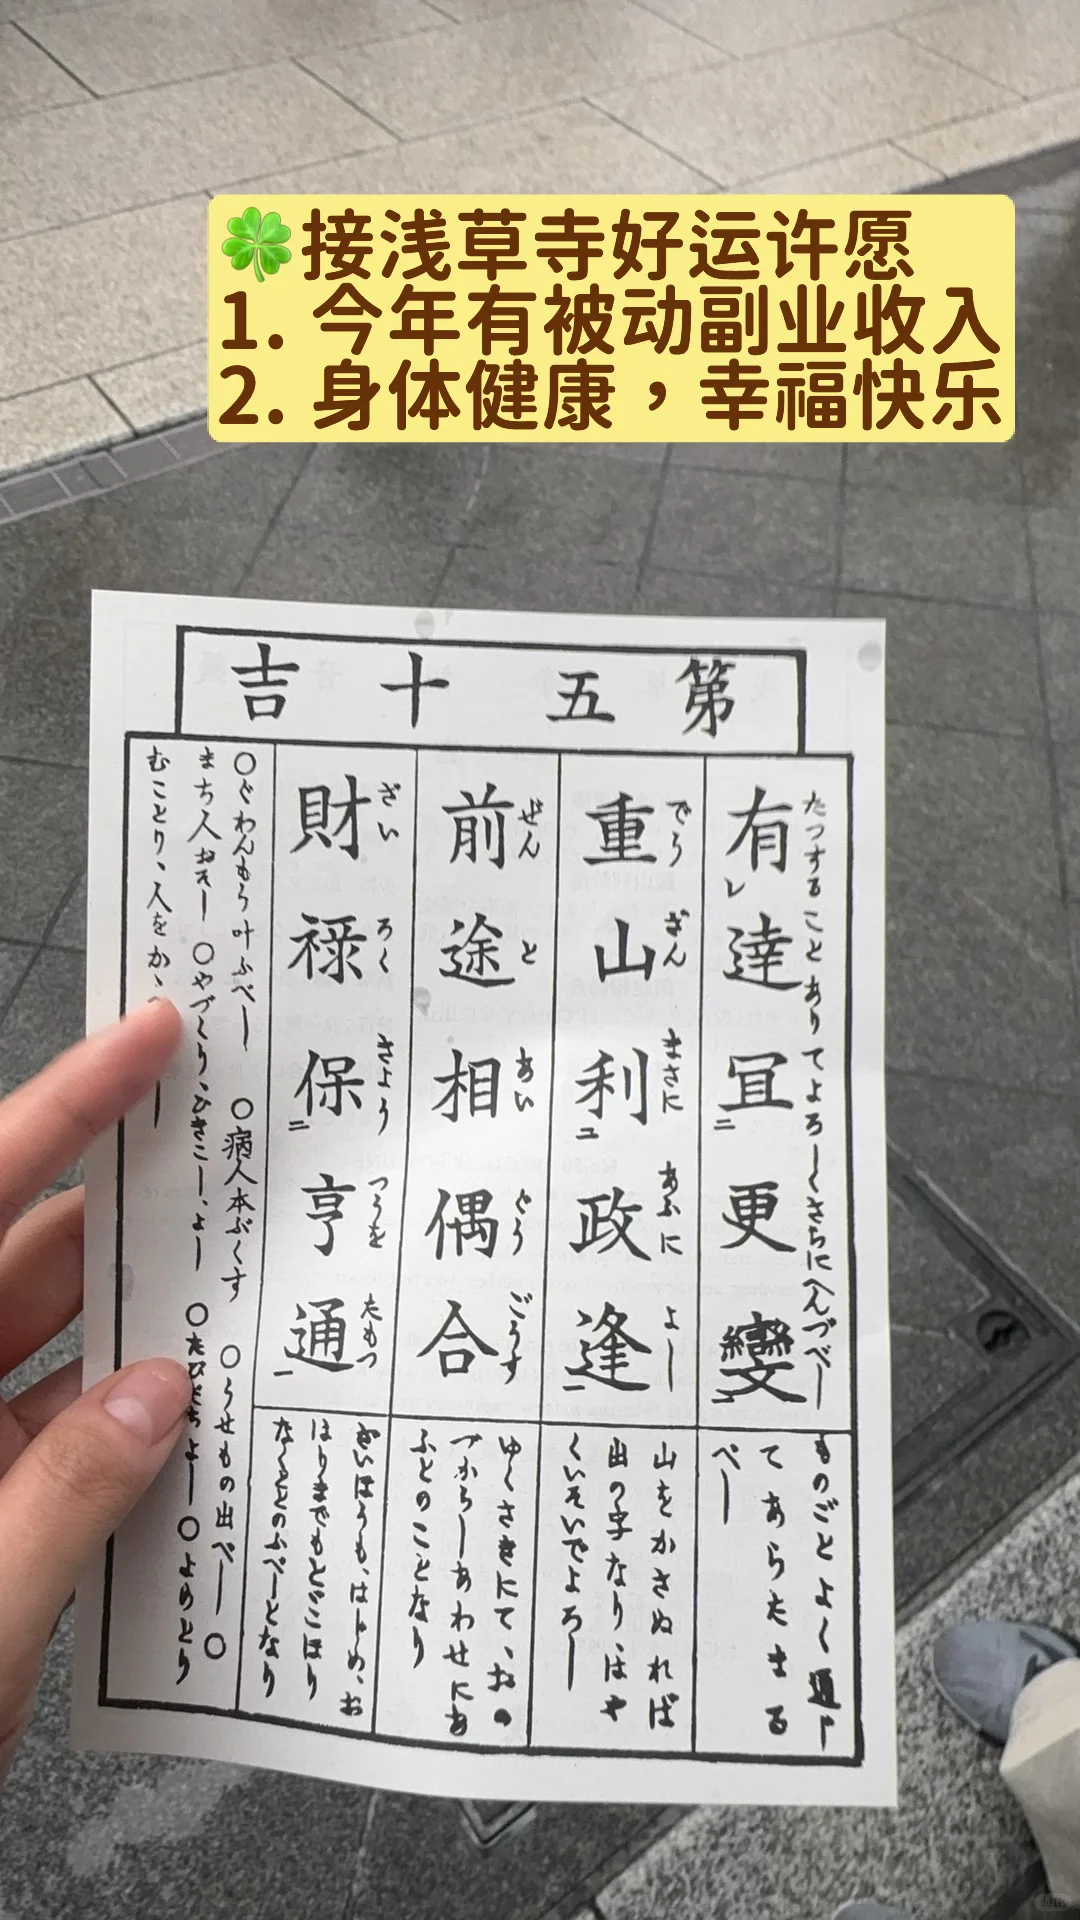 🍀接浅草寺好运许愿
1. 今年有被动副业收入
2. 身体健康，幸福快乐
第五十吉
有達冝更變
たつすることありてよろしくさらにへんづべし
重山利政逢
でうざんまさにあふによし
前途相偶合
ぜんとあいぐうごうす
財禄保亨通
ざいろくきようつうをたもつ
ものごとよく通じ
てあらたまる
べし
山をかさぬれば
出の字なり、はや
くいそいでよろし
ゆくさきにて、おの
づからしあわせにあ
ふとのことなり
ざいほうも、はじめ、お
はりまでもとどこほり
なくとのふべしとなり
○ぐわんもう叶ふべし ○病人本ぶくす ○うせもの出べし ○
まち人おそし ○やづくり、ひきこし、よし ○たびだちよし ○よめとり
むことり、人をかゝ